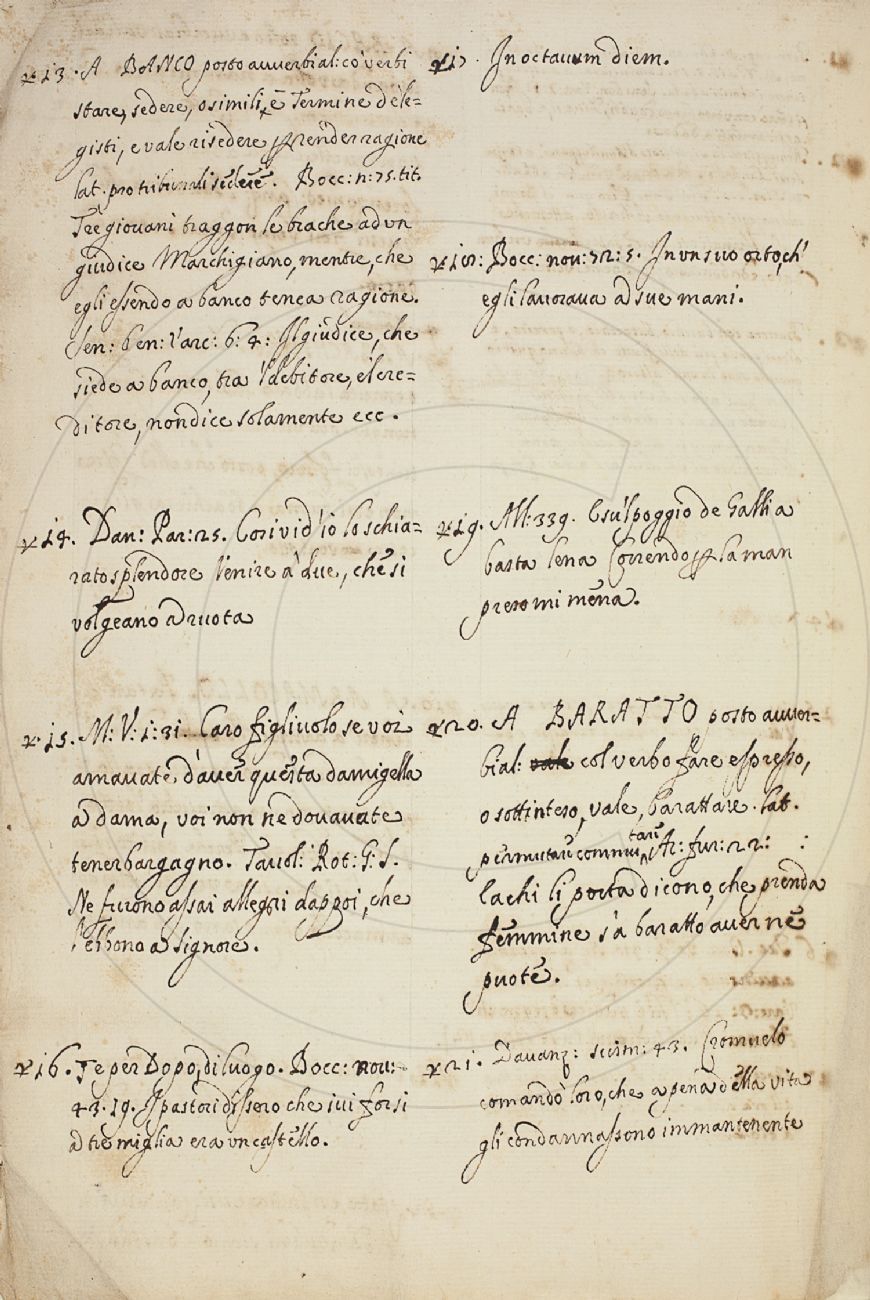 13. A BANCO posto avverbial: co verbi
stare, sedere, o simili, è Termine de le=
gisti, e vale risedere p rènder ragione
lat. pro tribunali sedere. Bocc: n: 75. tit.
Tre giovani traggon le brache ad vn
giudice Marchigiano, mentre, che
egli essendo a banco tenea ragione.
Sen: ben: Varc: 6: 4: Il giudice, che
siede a banco, tra 'l debitore, e'l cre=
ditore, non dice solamente ecc.
14. Dan: Par: 25. Cosi vid'io lo schia=
rato splendore Venire a' due, che si
volgeano ad ruota
15. M: V: 1: 31. Caro figliuolo se voi
amavate d'aver questa damigella
a dama, voi non ne dovavate
tener bargagno. Tavol: Rot: G: S.
Ne furono assai allegri dappoi, che
l'ebbono a signore.
16. Te per Dopo, di luogo. Bocc: nov:
43. 19. I pastori dissero che ivi forsi
a tre miglia era vn castello.
17. In octauum diem.
18: Bocc: nov: 72: 5. In vn suo orto, ch'
egli lavorava ad sue mani.
19. All: 339. E su 'l poggio de Gallia
basta lena Correndo p la man
preso mi mena.
20. A BARATTO posto avver=
bial: col verbo fare espresso,
o sottinteso, vale, barattare. Lat.
permutare commutare, Ar: fur: 22:
La chi li porta dicono, che prenda
femmine s'a baratto aver ne
puote.
21. Davanz: scism: 43. Cromuelo
comandò loro, che a pena della vita
gli condannassono immantenente